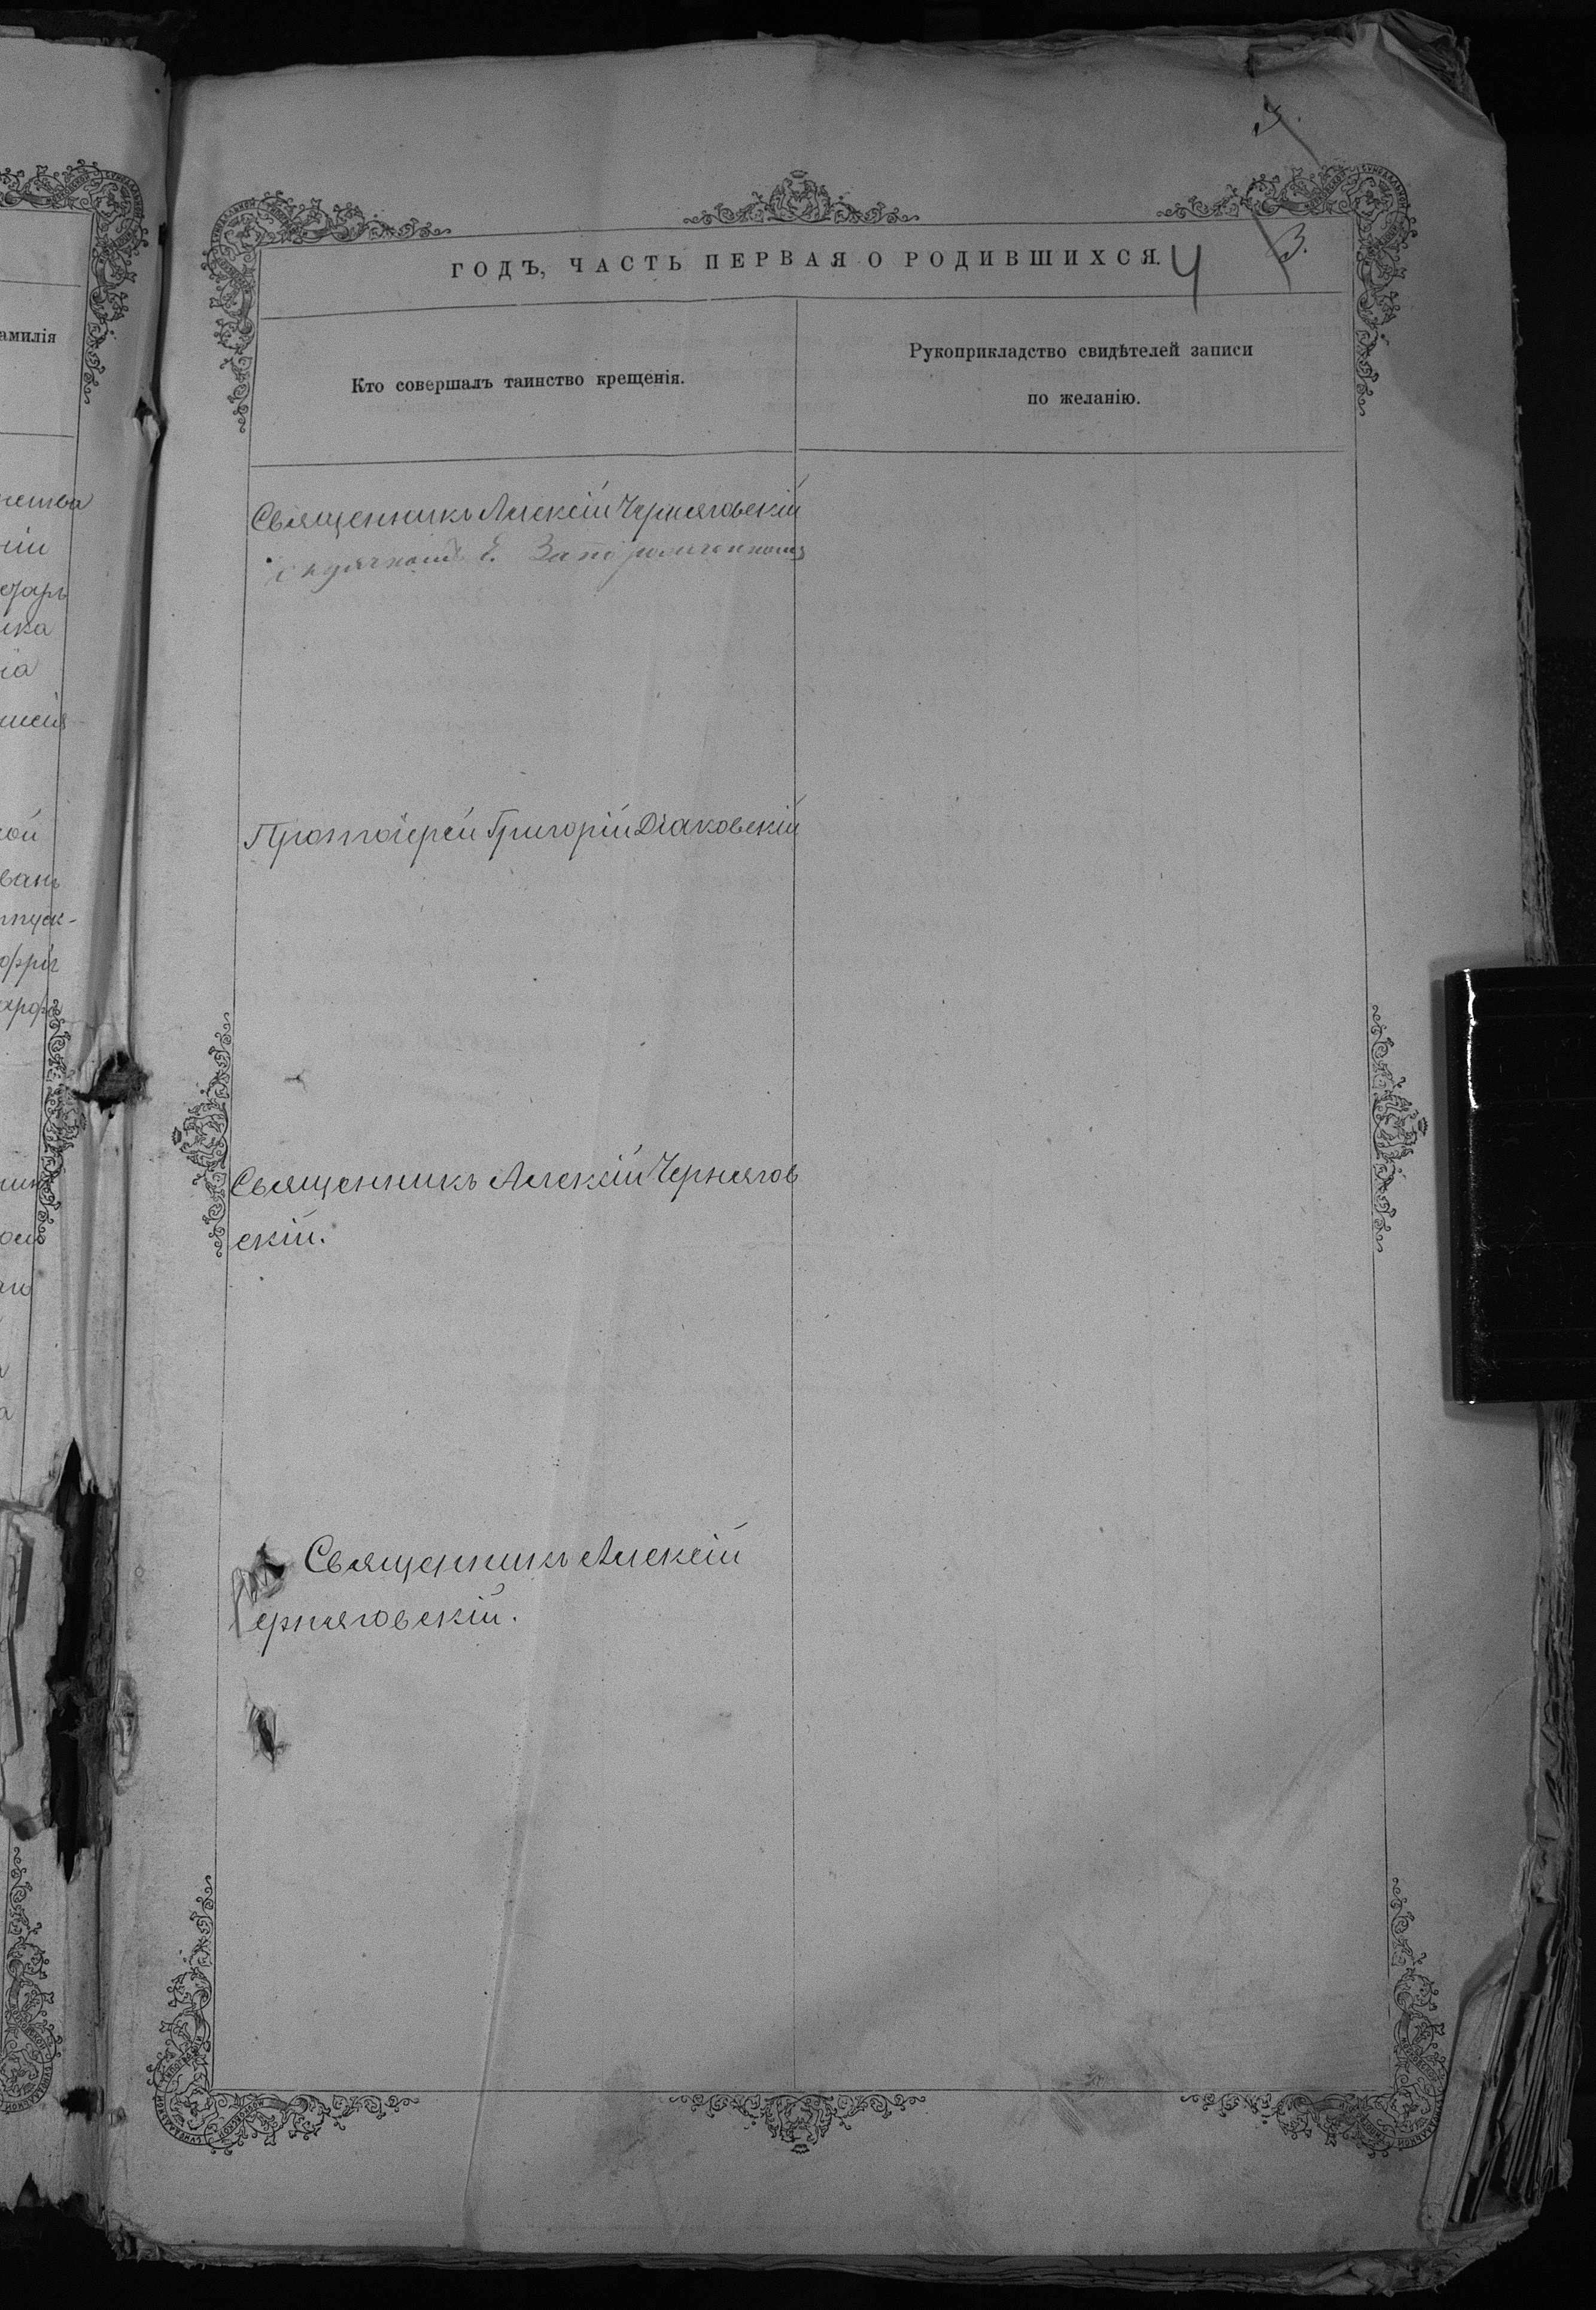 3.
ГОДЪ, ЧАСТЬ ПЕРВАЯ О РОДИВШИХСЯ.
4
3.
амилія
Кто совершалъ таинство крещенія.
Рукоприкладство свидѣтелей записи
по желанію.
Священникъ Алексій Черняговскій
Протоіерей Григорій Діаковскій
Священникъ Алексій Чернягов
скій.
Священникъ Алексій
Черняговскій.